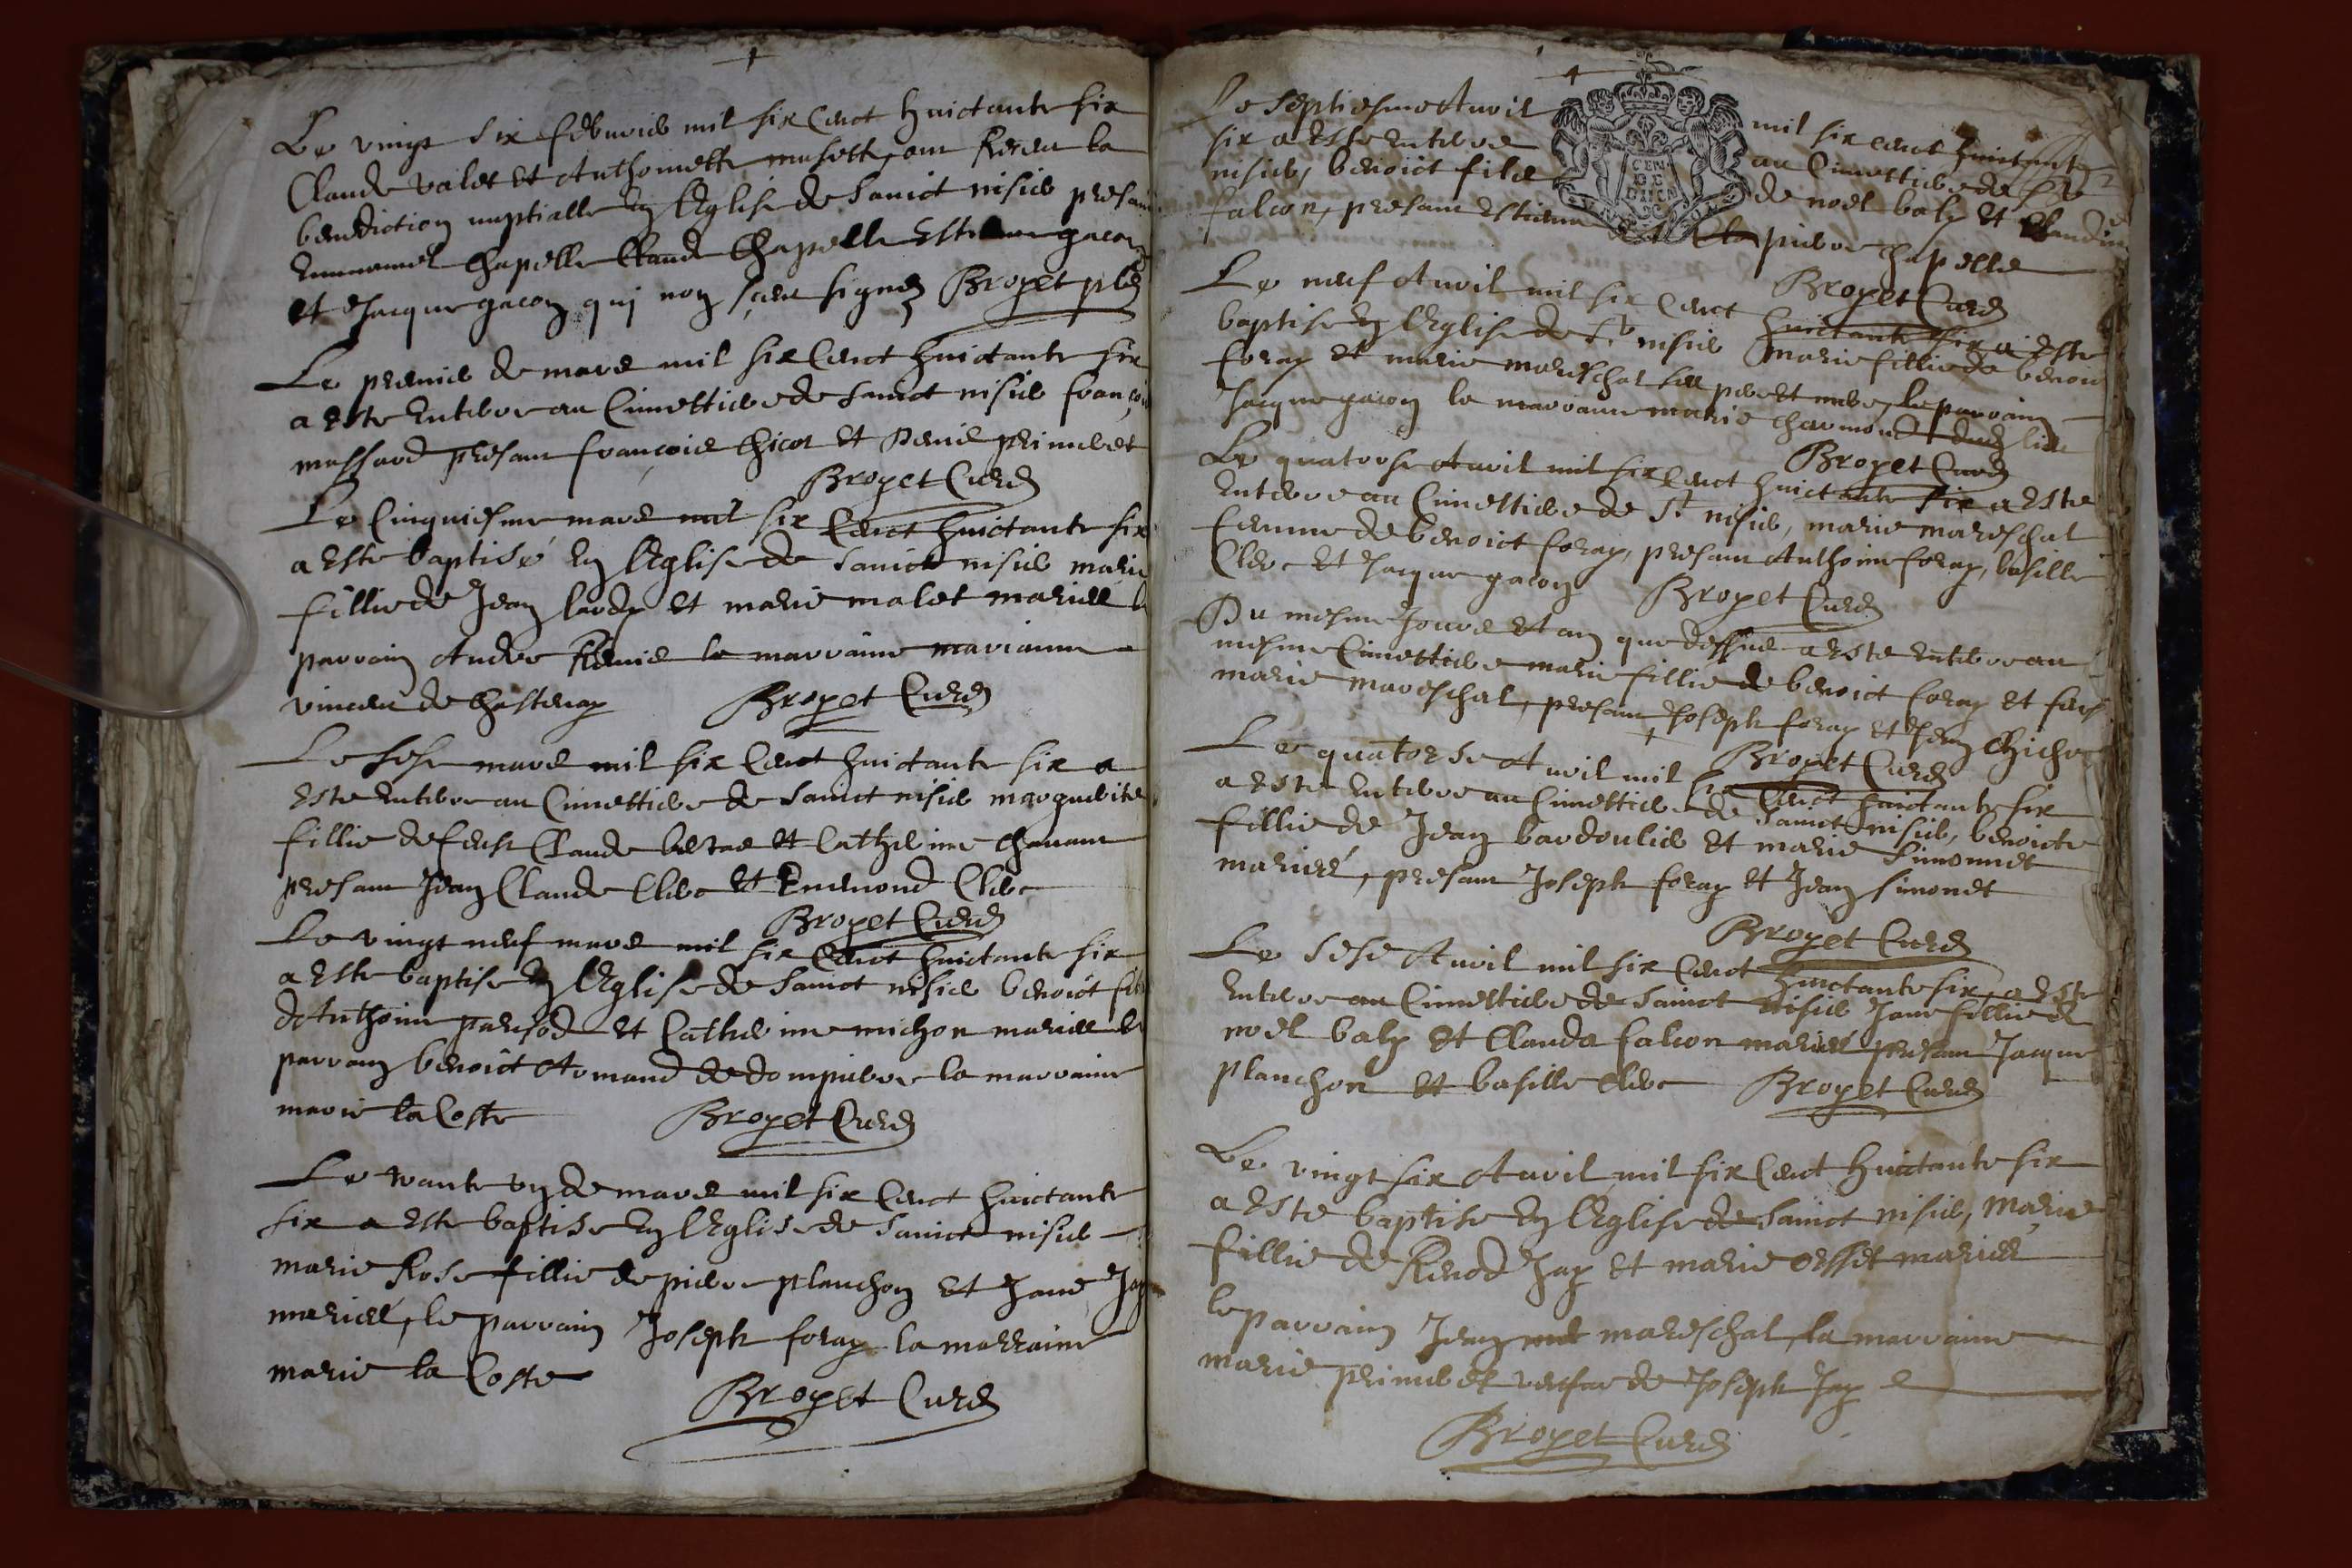 Le vingt six febvrier mil six Cent huictante six
Claude valet et Anthoinette musett, ont Receu la
benediction nuptialle en lEglise de Sainct nisier presan
Emmanuel Chapelle Claude Chapelle Estienne gacon
et Jacque gacon qui non sceu signer Broyet pbr
Le premier de mars mil six Cent huictante six
a este enterre au Cimettiere de Sainct nisier françois
massard presant françois Chicot et Denis primeret
Broyet Curé
Le Cinquiesme mars mil six Cent huictante six
a este baptisé en lEglise de Sainct nisier marie
fillie de Jean lardy et marie malet mariés le
parrain Andre Renis la marraine marianne
vincent de Chastenay Broyet Curé
Le sese mars mil six Cent huictante six a
este enterre au Cimettiere de Sainct nisier marguerite
fillie de feu Claude Catherine Chanant
presant Jean Claude Clerc et Emmond Clerc
Broyet Curé
Le vingt neuf mars mil six Cent huictante six
a este baptise en lEglise de Sainct nisier benoict fils
dAnthoine parisod et Catherine michon mariés le
parrain benoict Armand de dompierre la marraine
marie la Coste Broyet Curé
Le trante un de mars mil six Cent huictante
six a este baptise en lEglise de Sainct nisier
marie Rose fillie de pierre planchon et Jane Jay
mariés, le parrain Joseph foray la marraine
marie la Coste
Broyet Curé
Le septiesme Avril mil six Cent huictante
six a este enterre au Cimettiere de St
nisier, benoict fils de noel baly et Claudine
falcon, presant Estienne pierre Chapelle
Broyet Curé
Le neuf Avril mil six Cent huictante six a este
baptise en lEglise de St nisier marie fillie de benoict
foray et marie mareschal ses pere et mere, le parrain
Jacque gacon la marraine marie Charmond dudit lieu
Broyet Curé
Le quatorse Avril mil six Cent huictante six a este
enterre au Cimettiere de St nisier, marie mareschal
femme de benoict foray, presant Anthoine foray, basille
Clerc et Jacque gacon Broyet Curé
Du mesme Jour et an que dessus a este enterre au
mesme Cimettiere marie fillie de benoict foray et feue
marie mareschal, presant Joseph foray et Jean Chichot
Broyet Curé
Le quatorse Avril mil six Cent huictante six
a este enterre au Cimettiere de Sainct nisier, benoicte
fillie de Jean bardoulier et marie Simonnet
mariés, presant Joseph foray et Jean simonet
Broyet Curé
Le sese Avril mil six Cent huictante six, a este
enterre au Cimettiere de Sainct nisier Jane fillie de
noel baly et Clauda falcon mariés presant Jacque
planchon et basille Clerc Broyet Curé
Le vingt six Avril mil six Cent huictante six
a este baptise en lEglise de Sainct nisier, marie
fillie de Renod Jay et marie Osset mariés
le parrain Jean mareschal, la marraine
marie primeret vefve de Joseph Jay
Broyet Curé